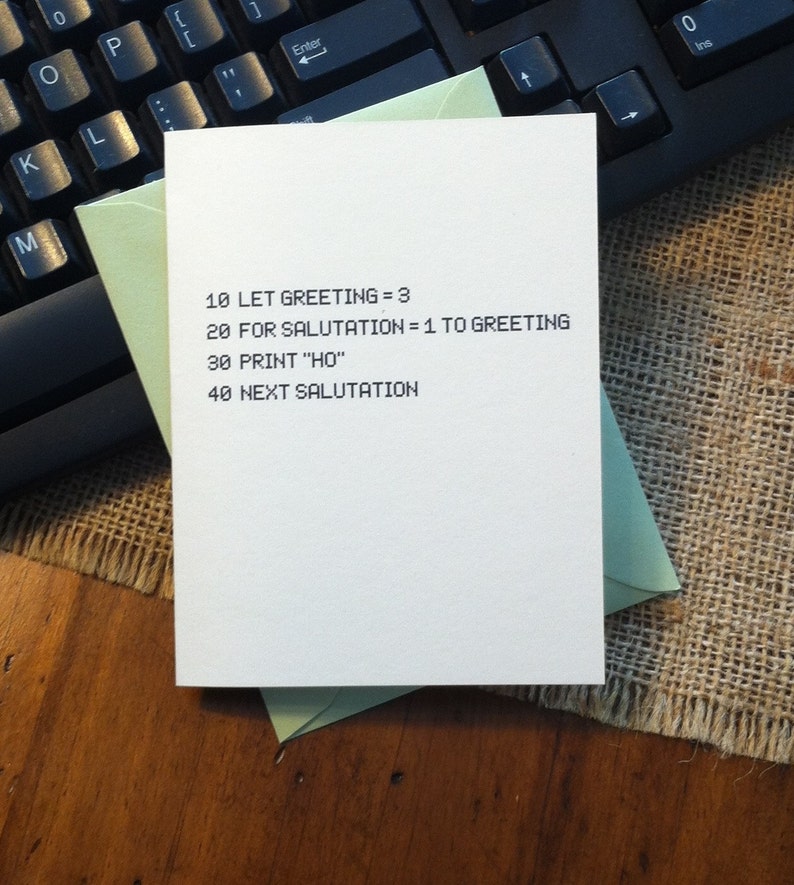 O P { [ Enter 0 Ins
O " '
K L : ; Shift
M
10 LET GREETING = 3
20 FOR SALUTATION = 1 TO GREETING
30 PRINT "HO"
40 NEXT SALUTATION